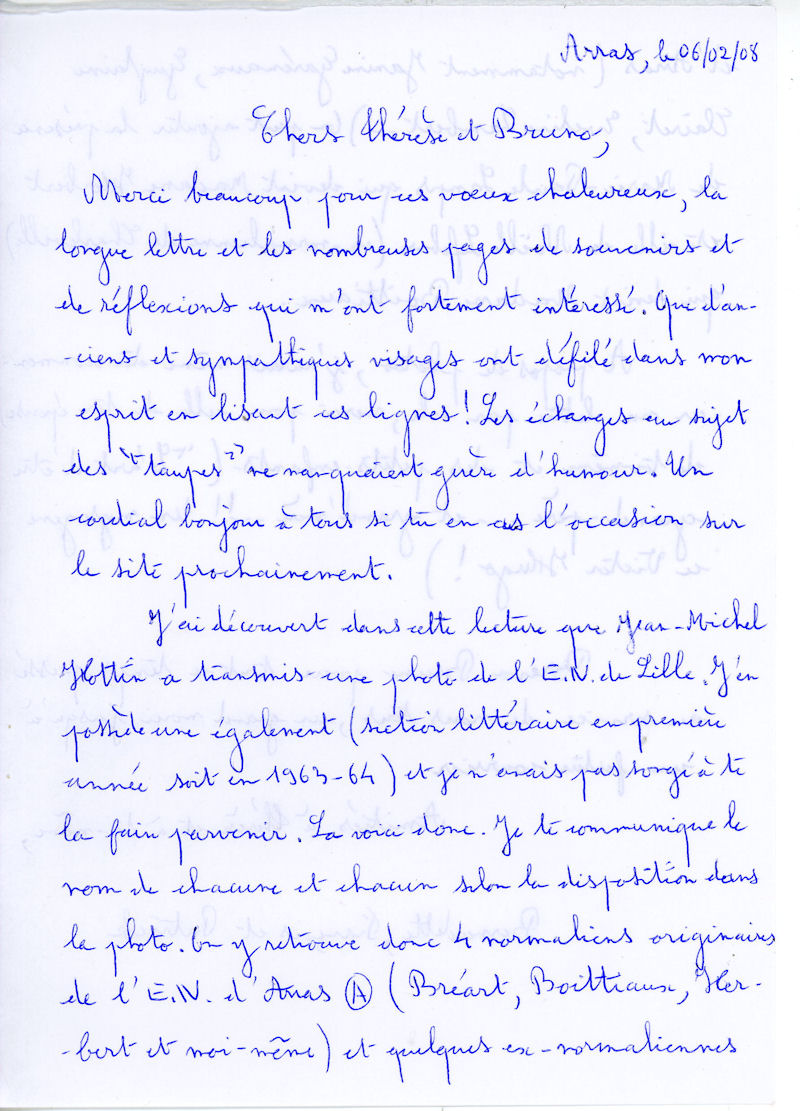 Arras, le 06/02/08
Chers Thérèse et Bruno,
Merci beaucoup pour ces vœux chaleureux, la
longue lettre et les nombreuses pages de souvenirs et
de réflexions qui m'ont fortement intéressé. Que d'an-
-ciens et sympathiques visages ont défilé dans mon
esprit en lisant ces lignes ! Les échanges au sujet
des "taupes" ne manquaient guère d'humour. Un
cordial bonjour à tous si tu en as l'occasion sur
le site prochainement.
J'ai découvert dans cette lecture que Jean-Michel
Hottin a transmis une photo de l'E.N. de Lille. J'en
possède une également (section littéraire en première
année soit en 1963-64) et je n'avais pas songé à te
la faire parvenir. La voici donc. Je te communique le
nom de chacune et chacun selon la disposition dans
la photo. On y retrouve donc 4 normaliens originaires
de l'E.N. d'Arras (A) (Bréart, Boittiaux, Her-
-bert et moi-même) et quelques ex-normaliennes